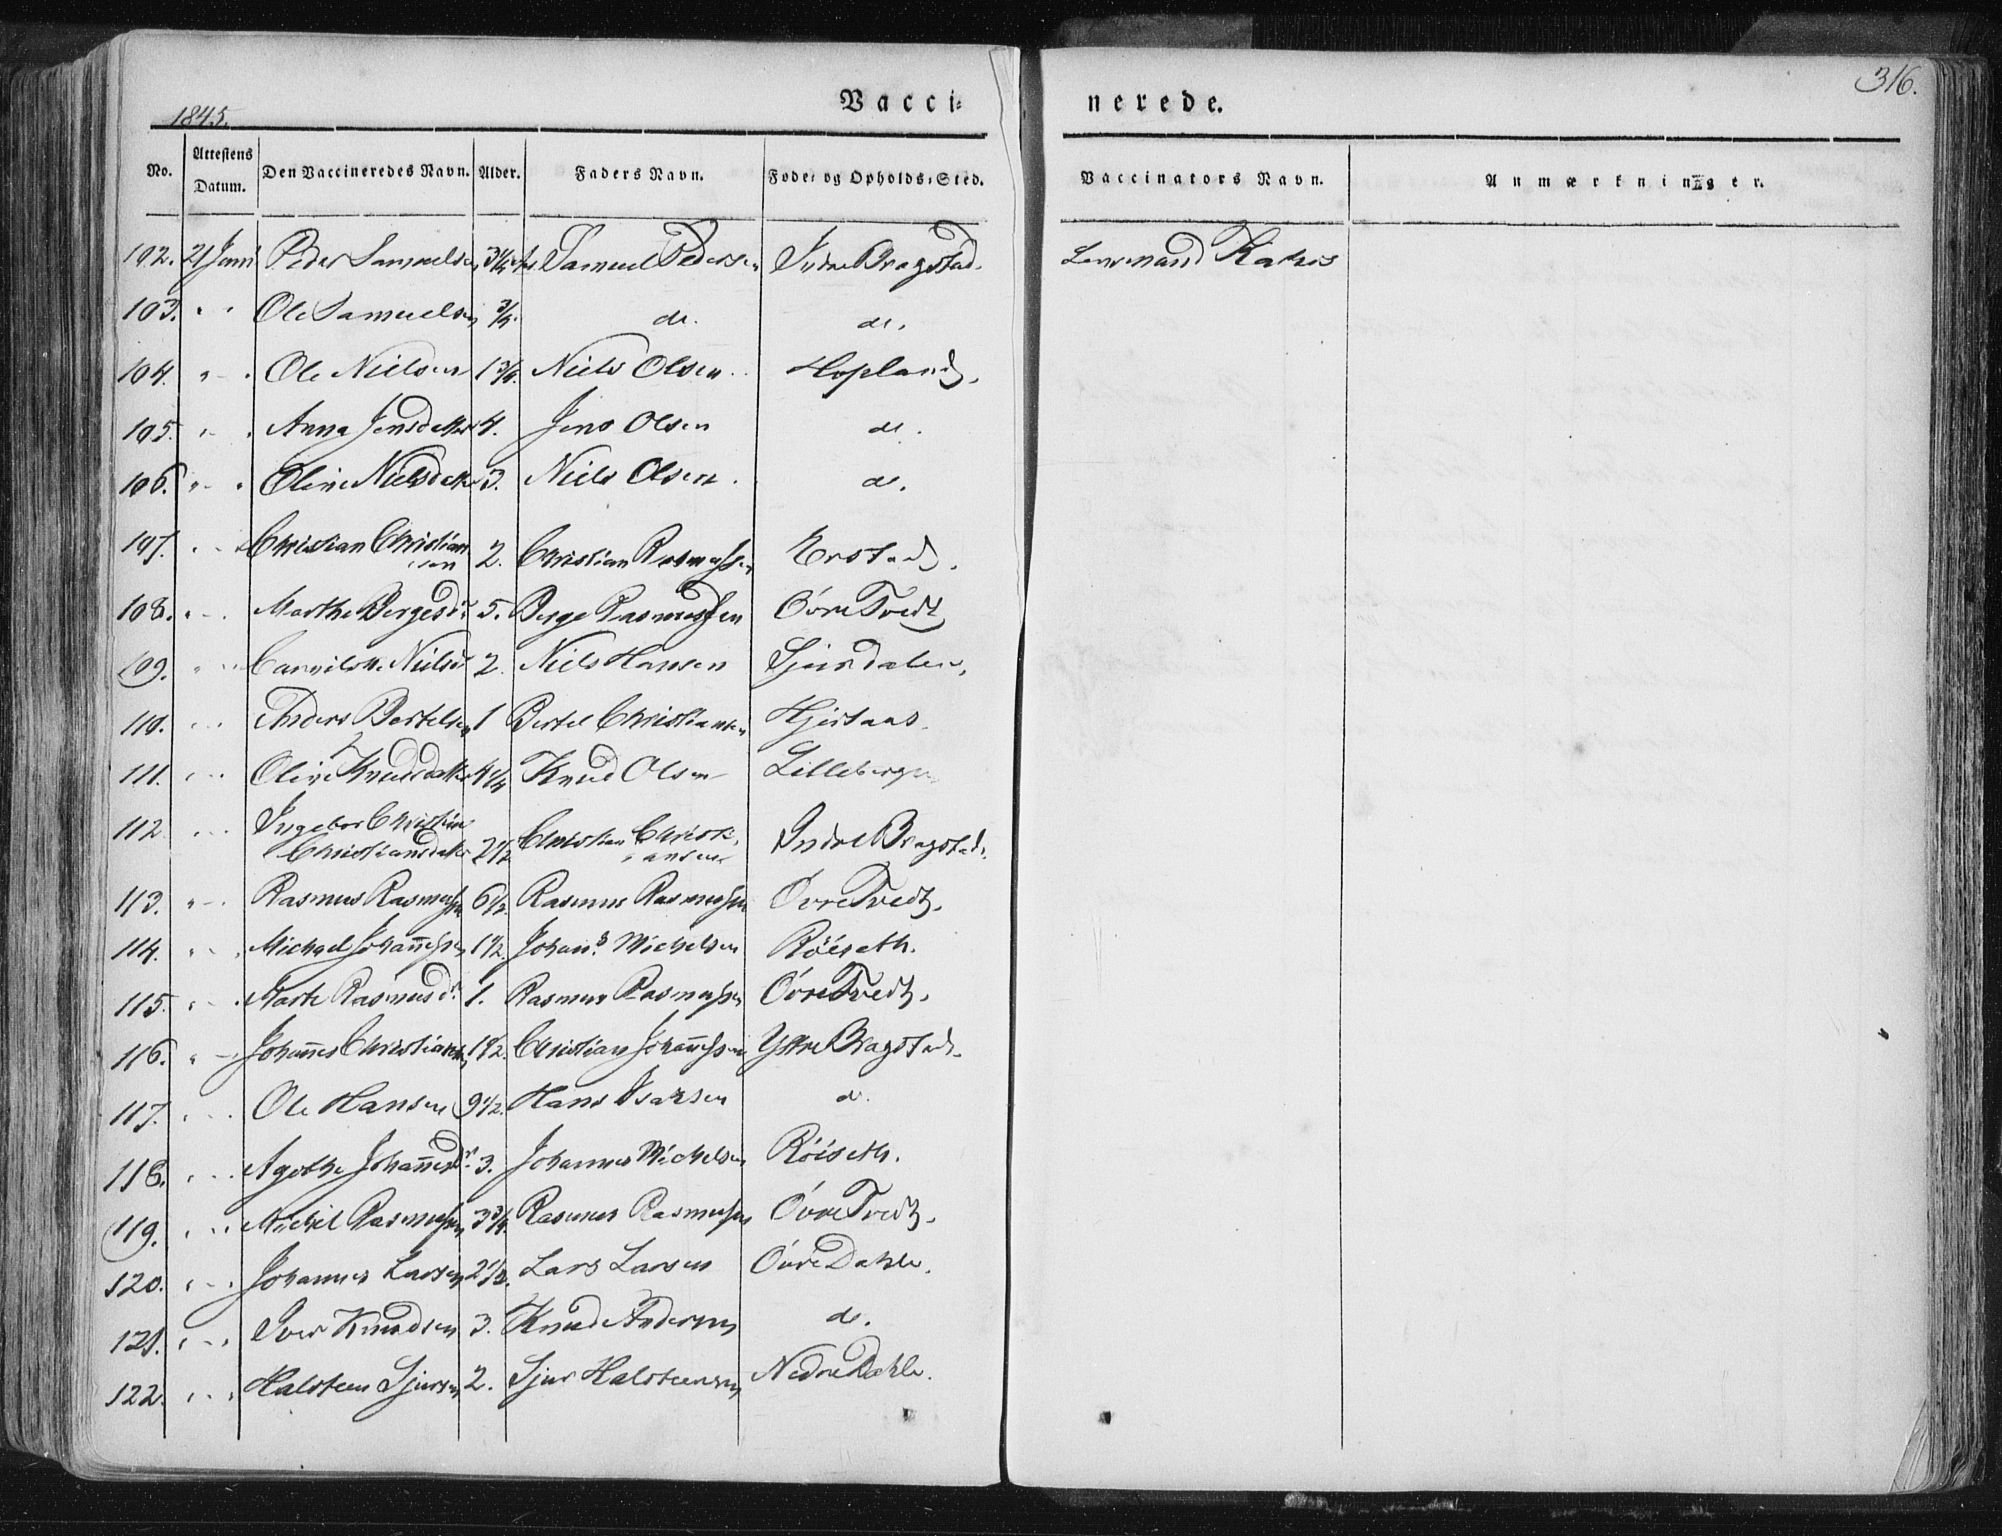 316.
1845.
Vacci-
nerede.
No. Attestens Datum. Den Vaccineredes Navn. Alder. Faders Navn. Føde- og Opholds-Sted. Vaccinators Navn. Anmærkninger.
102. 21 Juni Peder Samuelsen 3 1/4 Samuel Pedersen Indre Bragstad. Lensmand
103. " " Ole Samuelsen 3/4. do. do.
104. " - " Ole Nielsen 1 3/4. Niels Olsen. Hopland.
105. " - " Anna Jensdatter 4. Jens Olsen do.
106. " - " Oline Nielsdatter 3. Niels Olsen. do.
107. " - " Christian Christian
sen 2. Christian Rasmussen Erstad.
108. " - " Marthe Bergesdr 5. Berge Rasmussen Øvre Tvedt
109. " - " Nielsd 2. Niels Hansen
110. " - " Anders Bertelsen 1 Bertel Christiansen Hjertaas
111. " - " Oline Knudsdatter 4 1/4 Knud Olsen Lilleberge
112. " - " Ingebor Christine
Christiansdatter 2 1/2 Christian Christi
ansen Indre Bragstad.
113. " - " Rasmus Rasmussen 6 1/2. Rasmus Rasmussen Øvre Tvedt.
114. " - " Michael Johannessen 1 1/2. Johans Michelsen Röiseth.
115. " - " Marte Rasmusdr. 1. Rasmus Rasmussen Øvre Tvedt.
116. " - " Johannes Christiansen 1 1/2. Christian Johannessen Ytre Bragstad.
117. " - " Ole Hansen 9 1/2. Hans Isaksen do.
118. " - " Agethe Johannesdr. 3. Johannes Michelsen Röiseth.
119. " - " Michel Rasmussen 3 3/4. Rasmus Rasmussen Øvre Tvedt.
120. " - " Johannes Larsen 2 1/2. Lars Larsen Øvre Dahle.
121. " - " Iver Knudsen 3. Knud Andersen do.
122. " - " Halsteen Sjursen 2. Sjur Halsteensen Nedre Dahle.